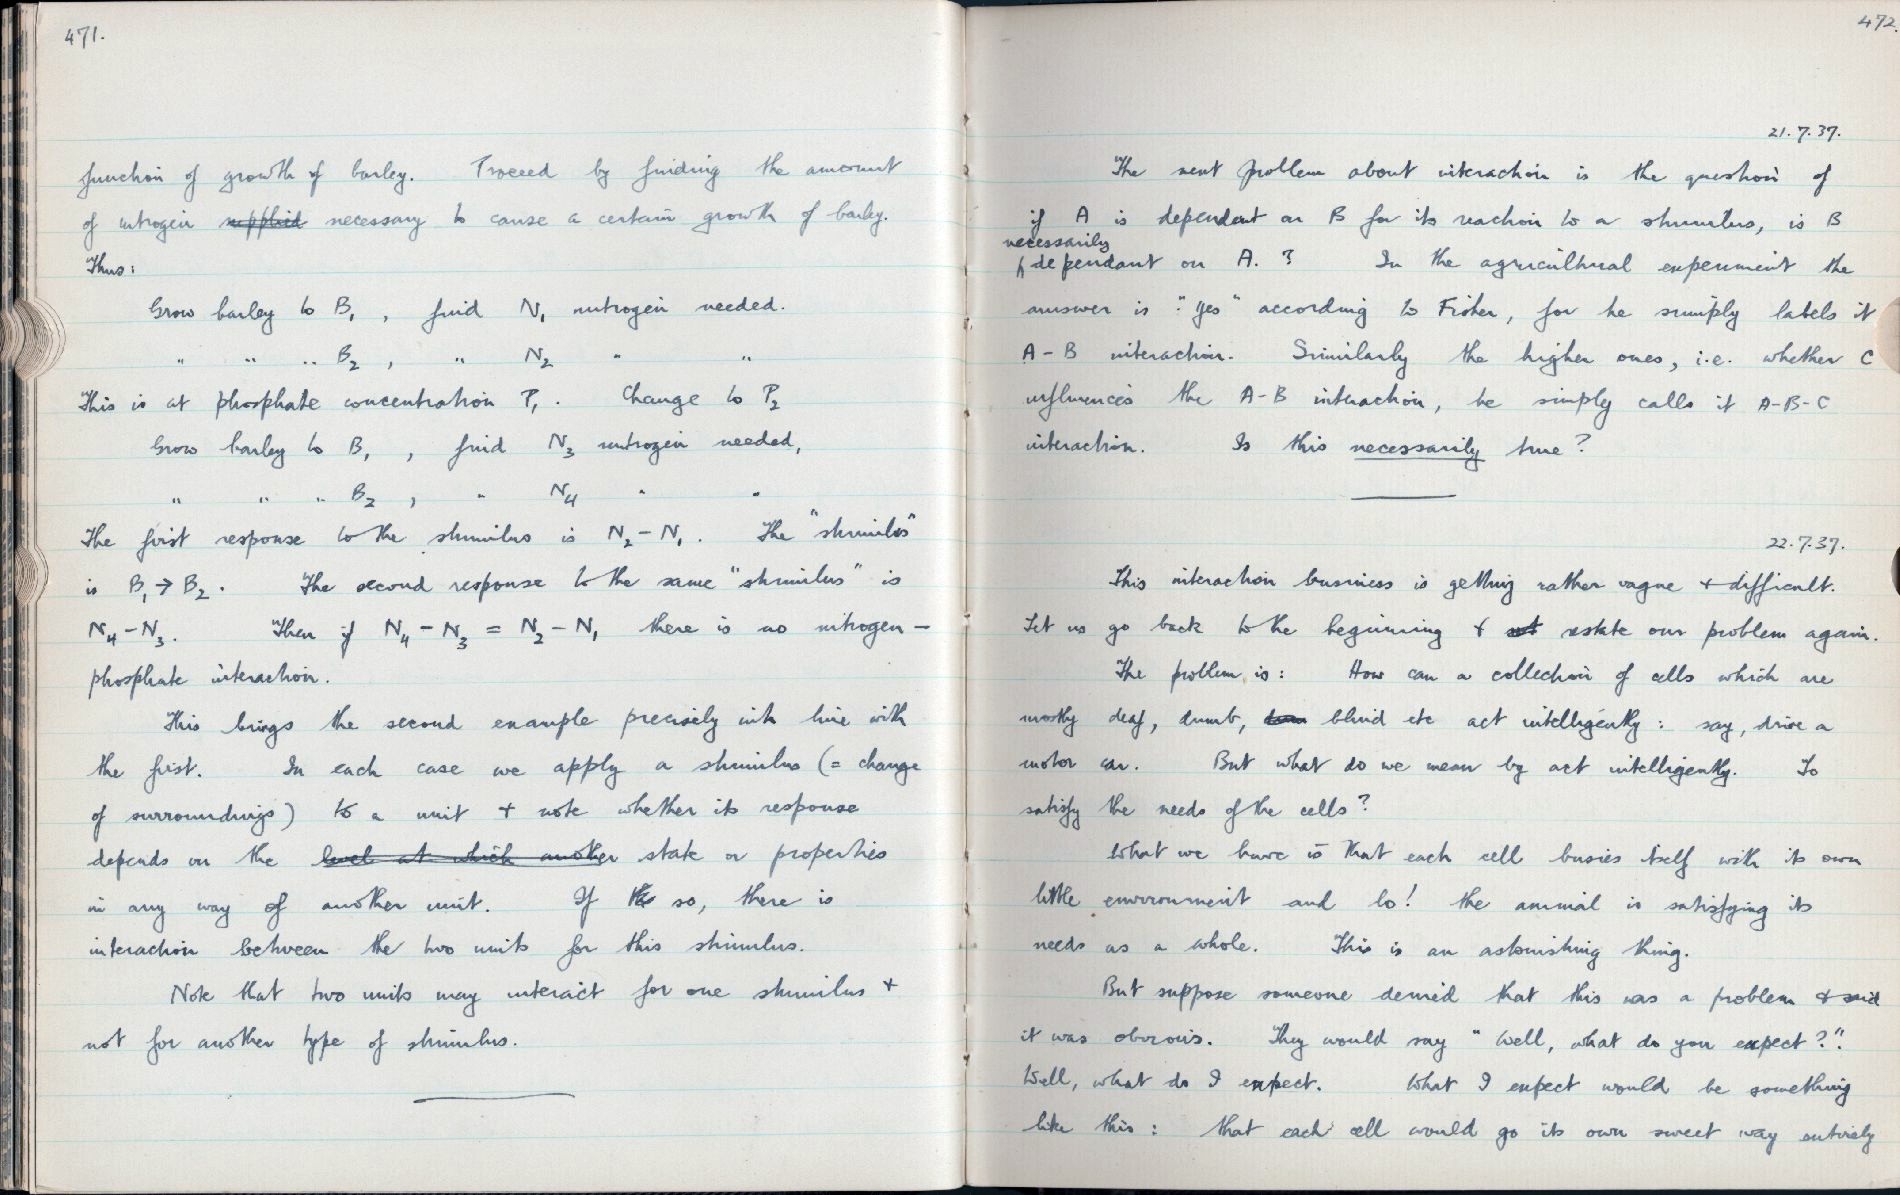 471.
function of growth of barley. Proceed by finding the amount
of nitrogen supplied necessary to cause a certain growth of barley.
Thus:
Grow barley to B₁ , find N₁ nitrogen needed.
" " " B₂ , " N₂ " "
This is at phosphate concentration P₁ . Change to P₂
Grow barley to B₁ , find N₃ nitrogen needed,
" " " B₂ , " N₄ " "
The first response to the stimulus is N₂ - N₁ . The "stimulus"
is B₁ → B₂ . The second response to the same "stimulus" is
N₄ - N₃. Then if N₄ - N₃ = N₂ - N₁ there is no nitrogen -
phosphate interaction.
This brings the second example precisely into line with
the first. In each case we apply a stimulus (= change
of surroundings) to a unit + note whether its response
depends on the level at which another state or properties
in any way of another unit. If so, there is
interaction between the two units for this stimulus.
Note that two units may interact for one stimulus +
not for another type of stimulus.
472.
21.7.37.
The next problem about interaction is the question of
if A is dependent on B for its reaction to a stimulus, is B
necessarily
dependant on A. ? In the agricultural experiment the
answer is "yes" according to Fisher, for he simply labels it
A - B interaction. Similarly the higher ones, i.e. whether C
influences the A-B interaction, he simply calls it A-B-C
interaction. Is this necessarily true?
22.7.37.
This interaction business is getting rather vague + difficult.
Let us go back to the beginning + restate our problem again.
The problem is: How can a collection of cells which are
mostly deaf, dumb, blind etc act intelligently: say, drive a
motor car. But what do we mean by act intelligently. To
satisfy the needs of the cells?
What we have is that each cell busies itself with its own
little environment and lo! the animal is satisfying its
needs as a whole. This is an astonishing thing.
But suppose someone denied that this was a problem + said
it was obvious. They would say "Well, what do you expect?".
Well, what do I expect. What I expect would be something
like this: that each cell would go its own sweet way entirely